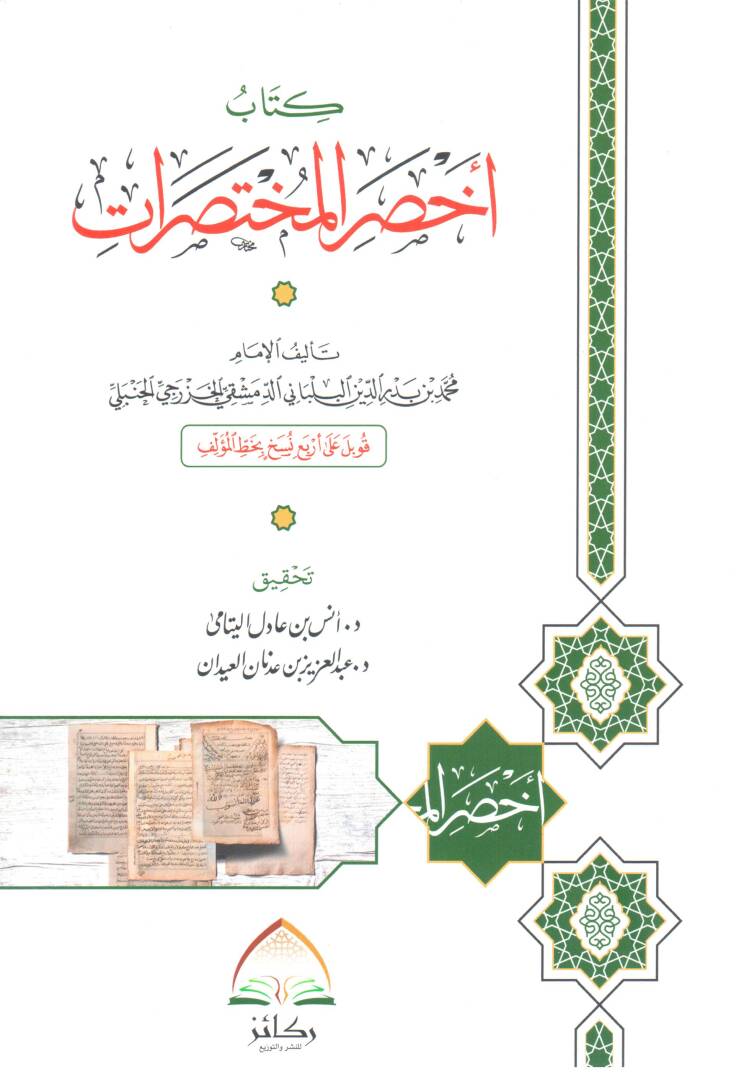 كِتَابُ
أَخْصَرِ الْمُخْتَصَرَاتِ
تَأليفُ الإِمَامِ
مُحَمَّد بْن بَدْر الدِّين الْبَلْبَانِي الدِّمَشْقِيِّ الْخَزْرَجِيِّ الْحَنْبَلِيِّ
قُوبِلَ عَلَى أَرْبَعِ نُسَخٍ بِخَطِّ الْمُؤَلِّفِ
تَحْقِيق
د. أنس بن عادل اليتامى
د. عبد العزيز بن عدنان العيدان
أَخْصَرِ الم
ركائز
للنشر والتوزيع